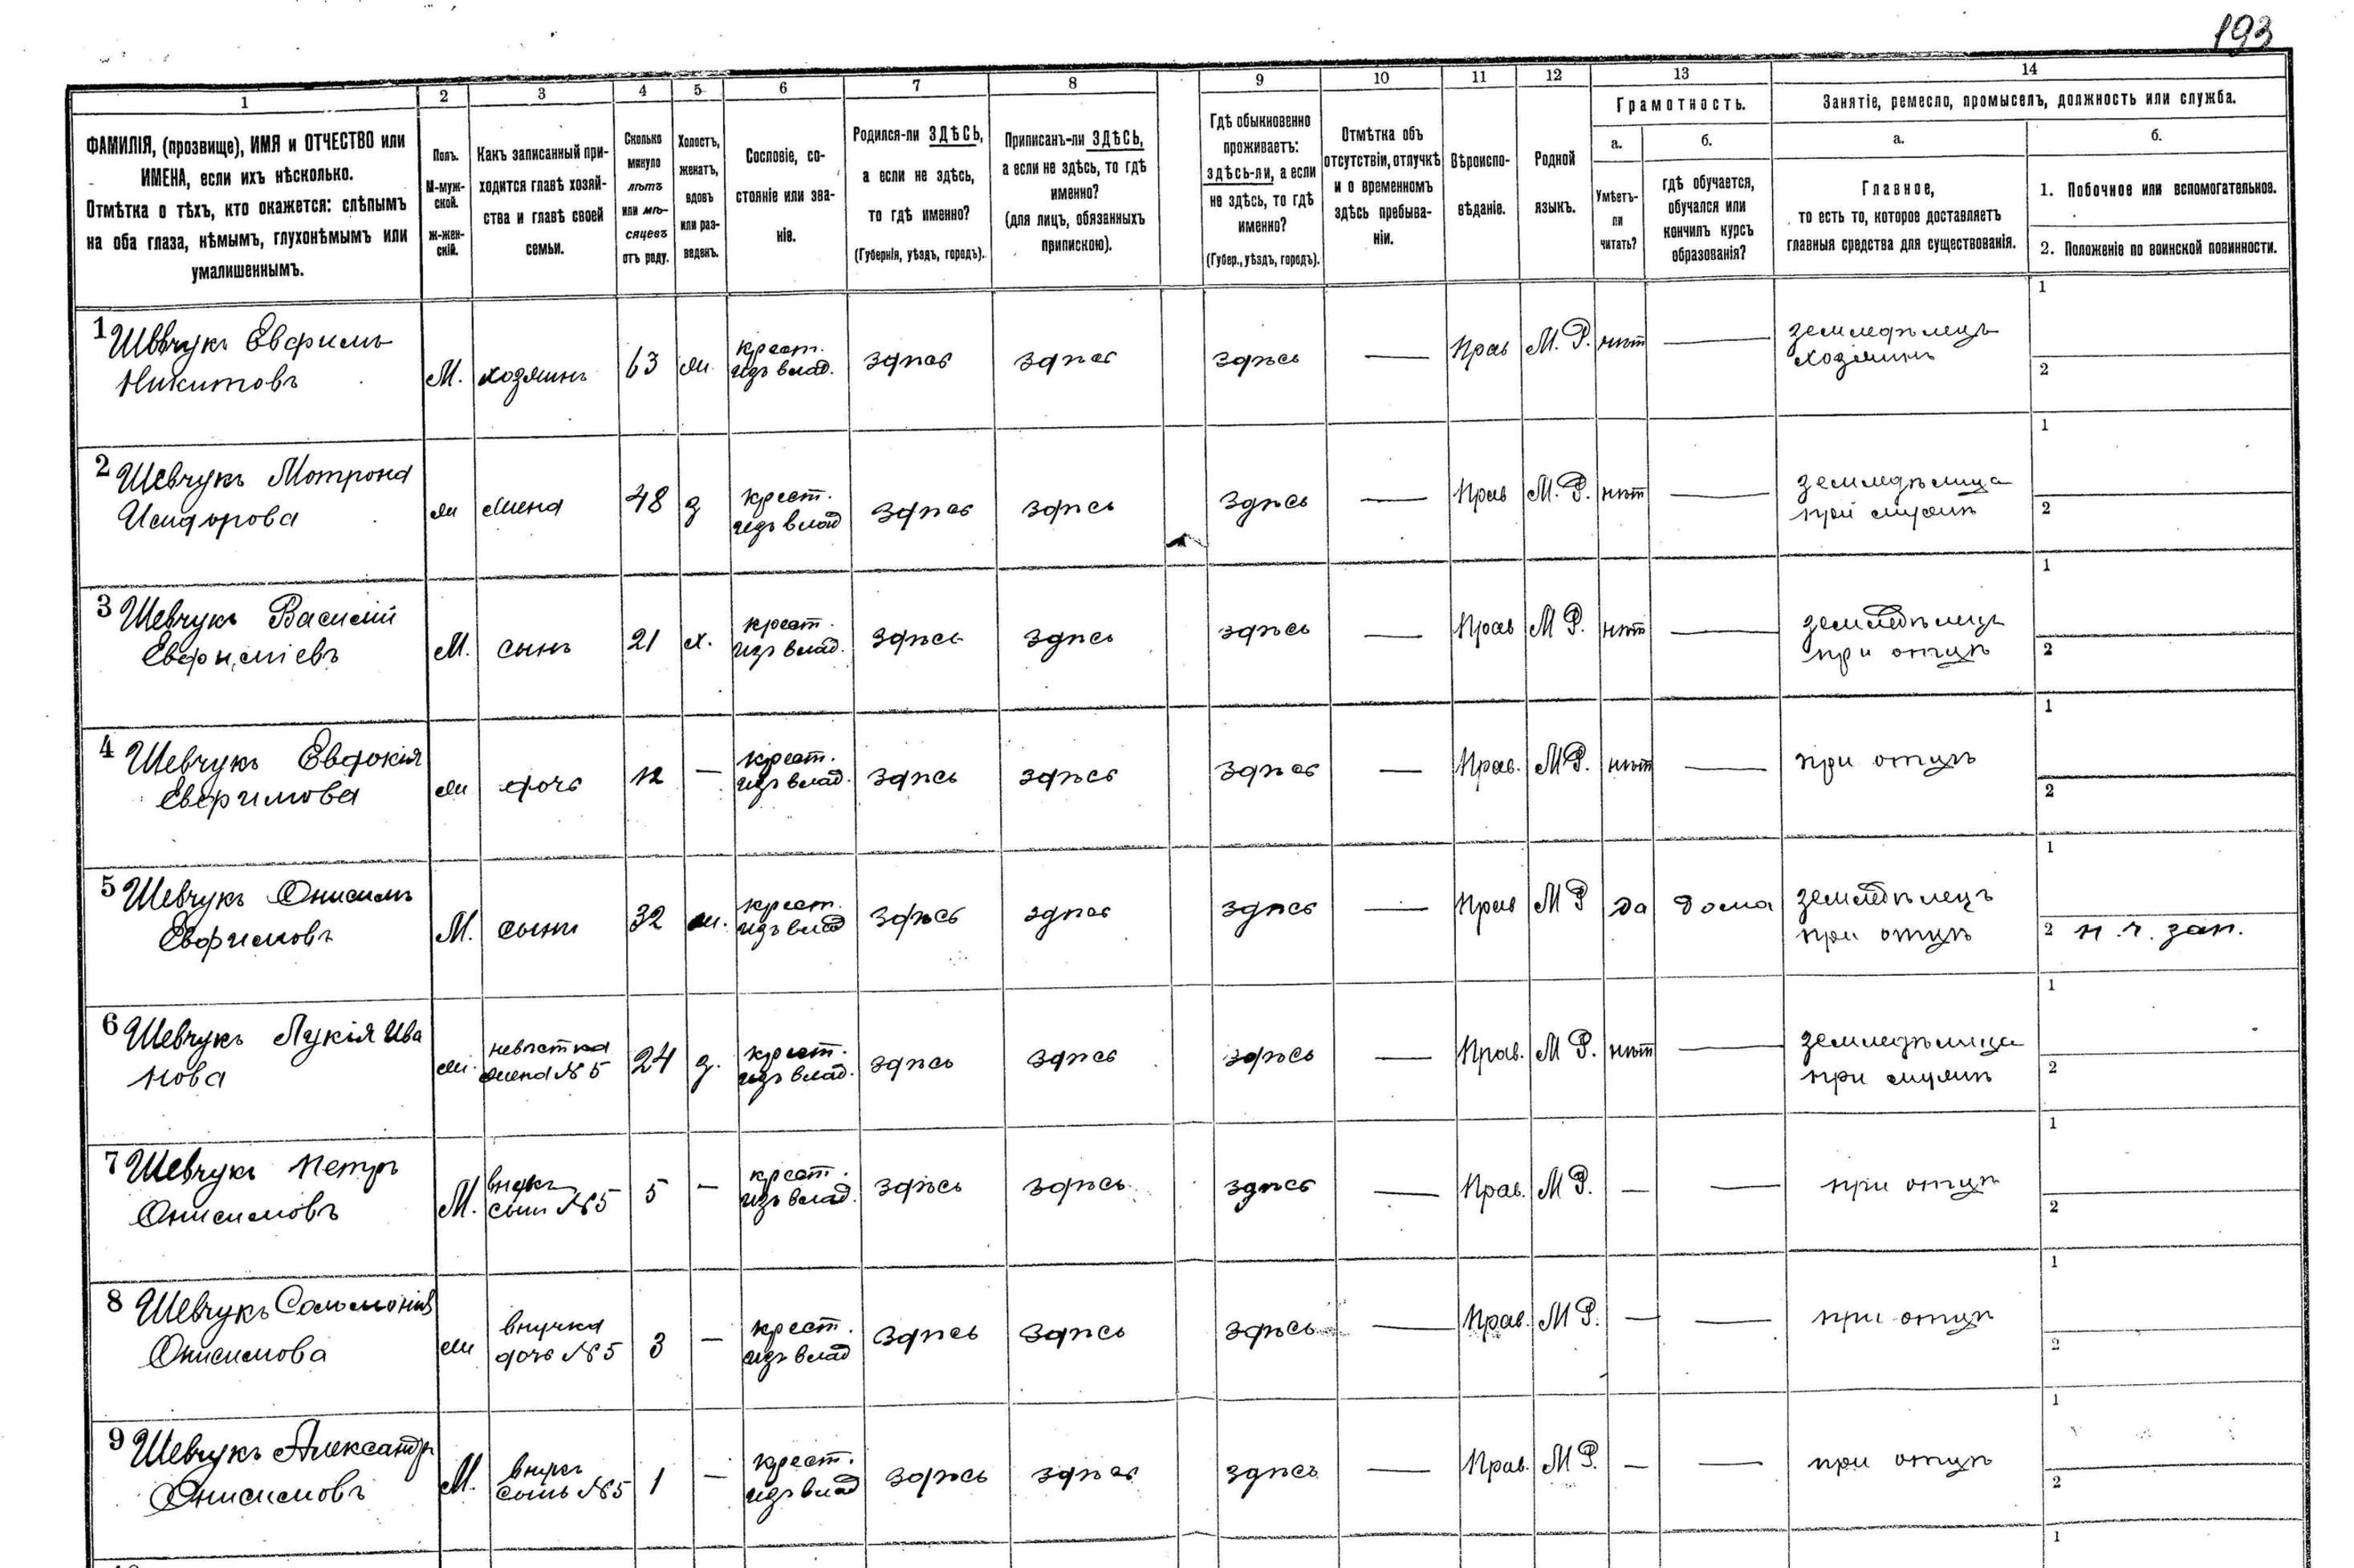 193
1 2 3 4 5 6 7 8 9 10 11 12 13 14
ФАМИЛІЯ, (прозвище), ИМЯ и ОТЧЕСТВО или
ИМЕНА, если ихъ нѣсколько.
Отмѣтка о тѣхъ, кто окажется: слѣпымъ
на оба глаза, нѣмымъ, глухонѣмымъ или
умалишеннымъ.
Полъ.
М-муж-
ской.
Ж-жен-
скій.
Какъ записанный при-
ходится главѣ хозяй-
ства и главѣ своей
семьи.
Сколько
минуло
лѣтъ
или мѣ-
сяцевъ
отъ роду.
Холостъ,
женатъ,
вдовъ
или раз-
веденъ.
Сословіе, со-
стояніе или зва-
ніе.
Родился-ли ЗДѢСЬ,
а если не здѣсь,
то гдѣ именно?
(Губернія, уѣздъ, городъ).
Приписанъ-ли ЗДѢСЬ,
а если не здѣсь, то гдѣ
именно?
(для лицъ, обязанныхъ
припискою).
Гдѣ обыкновенно
проживаетъ:
здѣсь-ли, а если
не здѣсь, то гдѣ
именно?
(Губер., уѣздъ, городъ).
Отмѣтка объ
отсутствіи, отлучкѣ
и о временномъ
здѣсь пребыва-
ніи.
Вѣроиспо-
вѣданіе.
Родной
языкъ.
Грамотность.
а.
Умѣетъ-
ли
читать?
б.
гдѣ обучается,
обучался или
кончилъ курсъ
образованія?
Занятіе, ремесло, промыселъ, должность или служба.
а.
Главное,
то есть то, которое доставляетъ
главныя средства для существованія.
б.
1. Побочное или вспомогательное.
2. Положеніе по воинской повинности.
1 Шевчукъ Евфимъ
Никитовъ
М. хозяинъ 63 ж. крест.
изъ влад. здѣсь здѣсь здѣсь — Прав М. Р. нѣт — земледѣлецъ
хозяинъ
1
2
2 Шевчукъ Мотрона
Исидорова
ж жена 48 з крест.
изъ влад здѣсь здѣсь здѣсь — Прав М. Р. нѣт — земледѣлица
при мужѣ
1
2
3 Шевчукъ Василій
Евфиміевъ
М. сынъ 21 х. крест.
изъ влад. здѣсь здѣсь здѣсь — Прав М Р. нѣт — земледѣлецъ
при отцѣ
1
2
4 Шевчукъ Евдокія
Евфимова
ж дочь 12 — крест.
изъ влад. здѣсь здѣсь здѣсь — Прав. М Р. нѣт — при отцѣ
1
2
5 Шевчукъ Онисимъ
Евфимовъ
М. сынъ 32 ж. крест.
изъ влад здѣсь здѣсь здѣсь — Прав М Р да дома земледѣлецъ
при отцѣ
1
2 н. ч. зап.
6 Шевчукъ Лукія Ива
нова
ж. невѣстка
жена №5 24 з. крест.
изъ влад. здѣсь здѣсь здѣсь — Прав. М Р. нѣт — земледѣлица
при мужѣ
1
2
7 Шевчукъ Петръ
Онисимовъ
М. внукъ
сынъ №5 5 — крест.
изъ влад. здѣсь здѣсь здѣсь — Прав. М Р. — — при отцѣ
1
2
8 Шевчукъ Соломонія
Онисимова
ж внучка
дочь №5 3 — крест.
изъ влад здѣсь здѣсь здѣсь — Прав. М Р. — — при отцѣ
1
2
9 Шевчукъ Александръ
Онисимовъ
М. внукъ
сынъ №5 1 — крест.
изъ влад здѣсь здѣсь здѣсь — Прав. М Р. — — при отцѣ
1
2
1